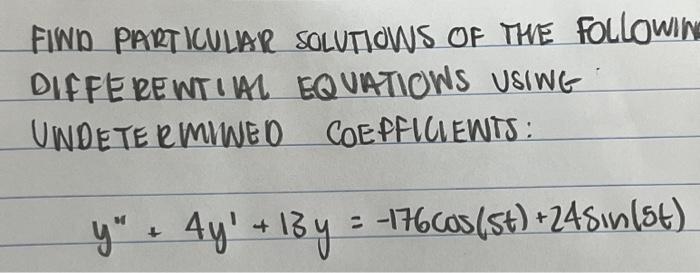 FIND PARTICULAR SOLUTIONS OF THE FOLLOWIN
DIFFERENTIAL EQUATIONS USING
UNDETERMINED COEFFICIENTS:
y" + 4y' + 13y = -176cos(5t) + 24sin(5t)